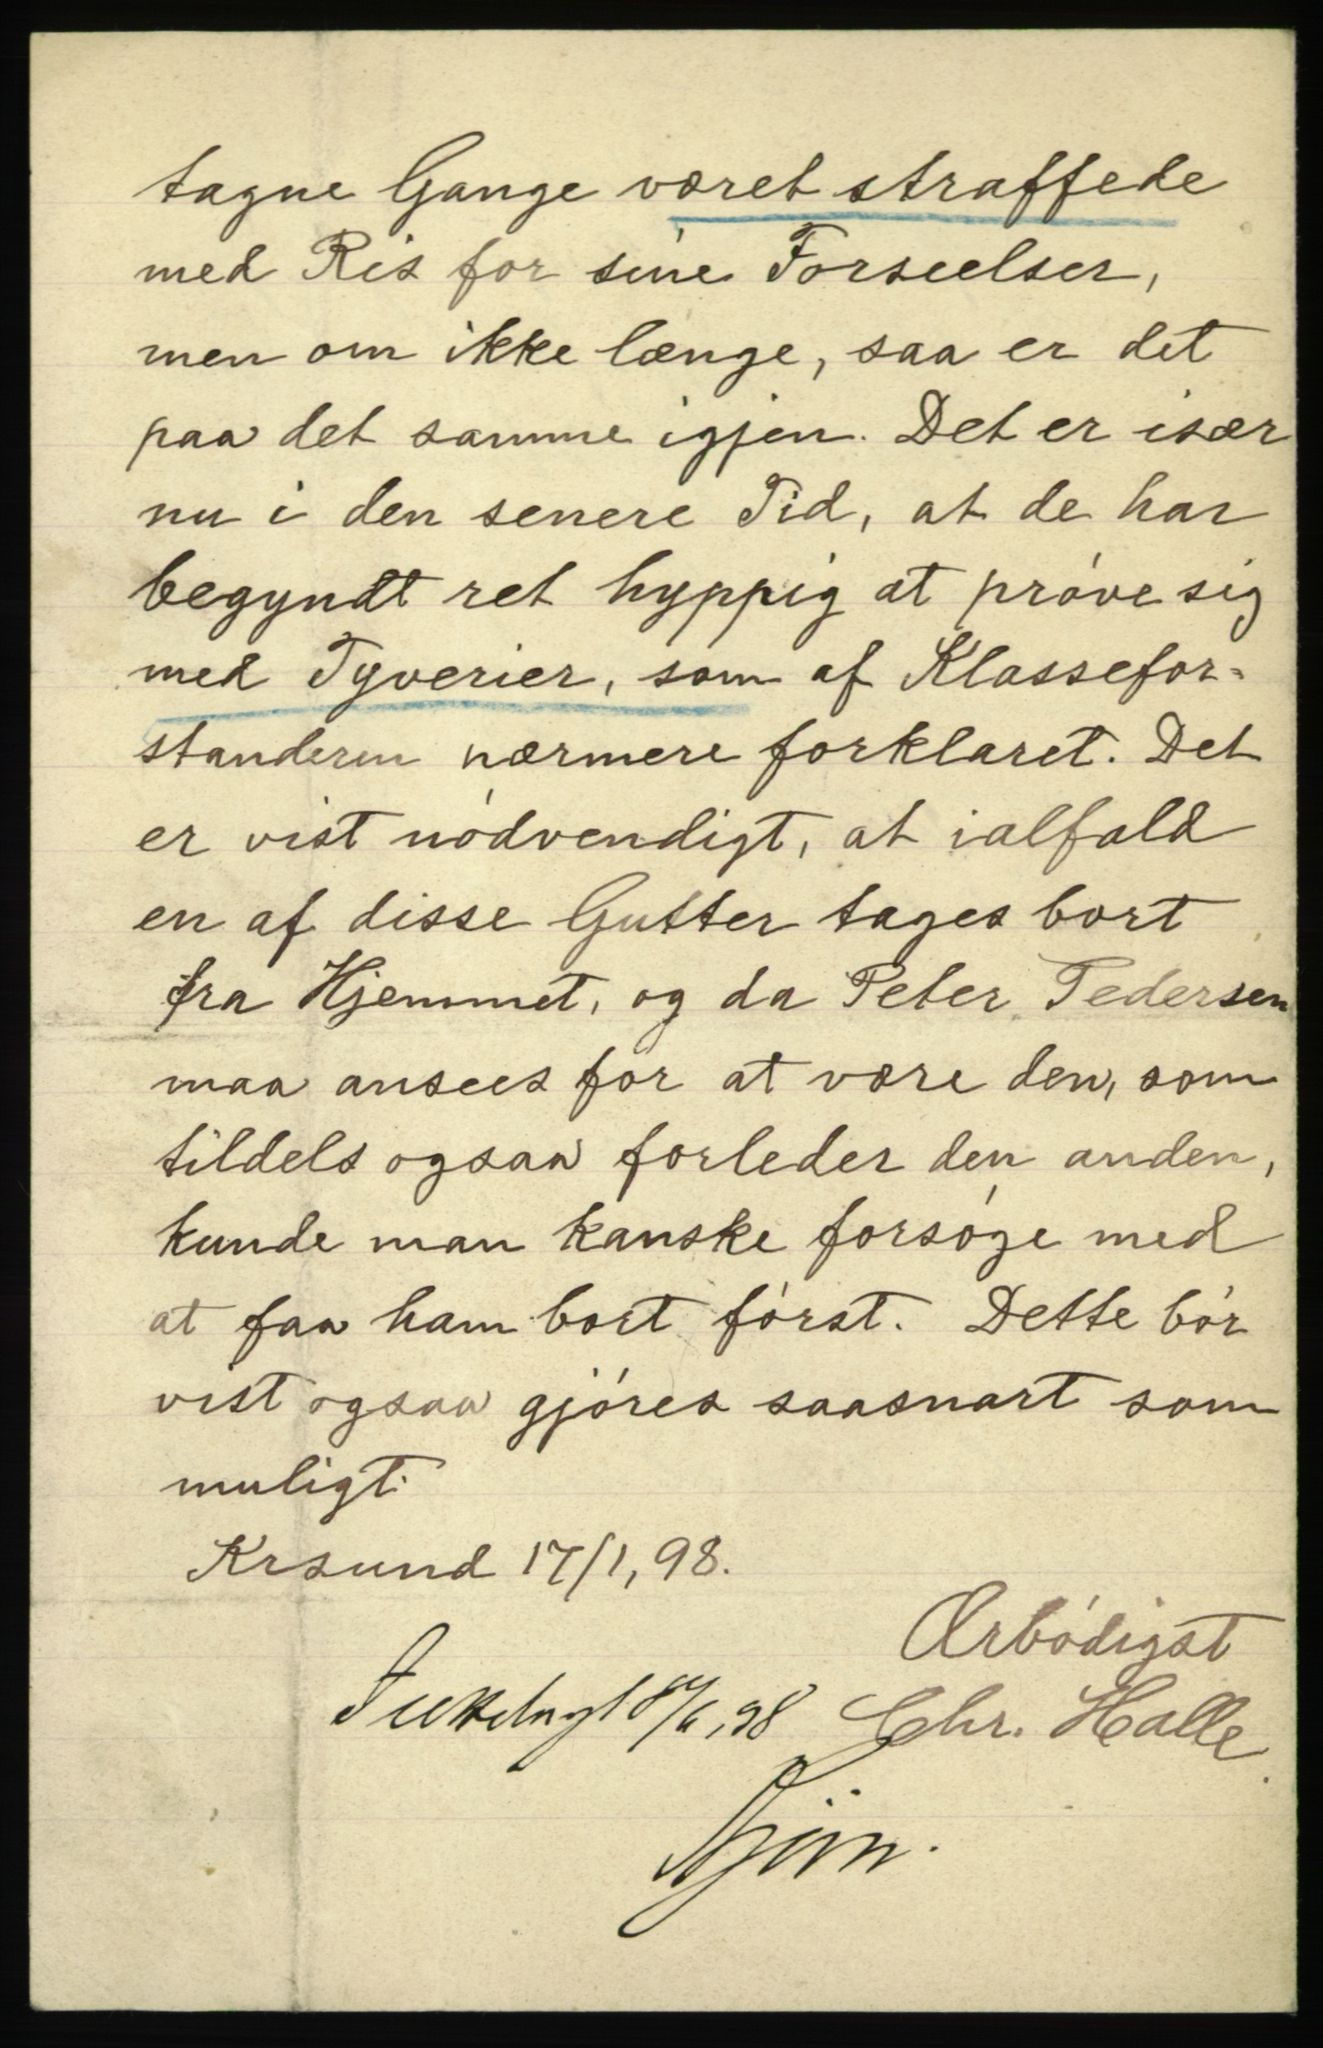 tagne Gange været straffede
med Ris for sine Forseelser,
men om ikke længe, saa er det
paa det samme igjen. Det er især
nu i den senere Tid, at de har
begyndt ret hyppig at prøve sig
med Tyverier, som af Klassefor-
standeren nærmere forklaret. Det
er vist nødvendigt, at ialfald
en af disse Gutter tages bort
fra Hjemmet, og da Peter Pedersen
maa ansees for at være den, som
tildels ogsaa forleder den anden,
kunde man kanske forsøge med
at faa ham bort først. Dette bør
vist ogsaa gjøres saasnart som
muligt.
Krsund 17/1, 98.
Ærbødigst
Chr. Halle